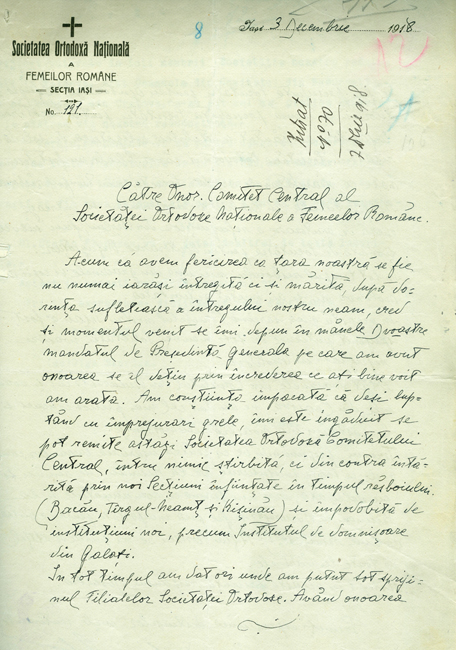 Societatea Ortodoxă Națională
A
FEMEILOR ROMÂNE
SECȚIA IAȘI
No. 121.
8
Iași 3 Decembrie 1918
Intrat
No. 70
Către Onor. Comitet Central al
Societăței Ortodoxe Naționale a Femeelor Române.
Acum că avem fericirea ca țara noastră se fie
nu numai iarăși întregită ci si mărită, după do-
rința sufletească a întregului nostru neam, cred
și momentul venit se îmi depun în mânele Dvoastre
mandatul de Presidentă generala pe care am avut
onoarea se il dețin prin increderea ce ați bine voit
ami arata. Am conștiința impacată că desi lup-
tând cu împrejurari grele, îmi este ingăduit se
pot remite astăzi Societatea Ortodoxă Comitetului
Central, intru nimic știrbita, ci din contra întă-
rită prin noi Secțiuni înființate in timpul răsboiului.
(Bacău, Tîrgul-Neamț și Kișinău) si impodobită de
instituțiuni noi, precum Institutul de domnișoare
din Galați.
In tot timpul am dat ori unde am putut tot spriji-
nul Filialelor Societăței Ortodoxe. Având onoarea